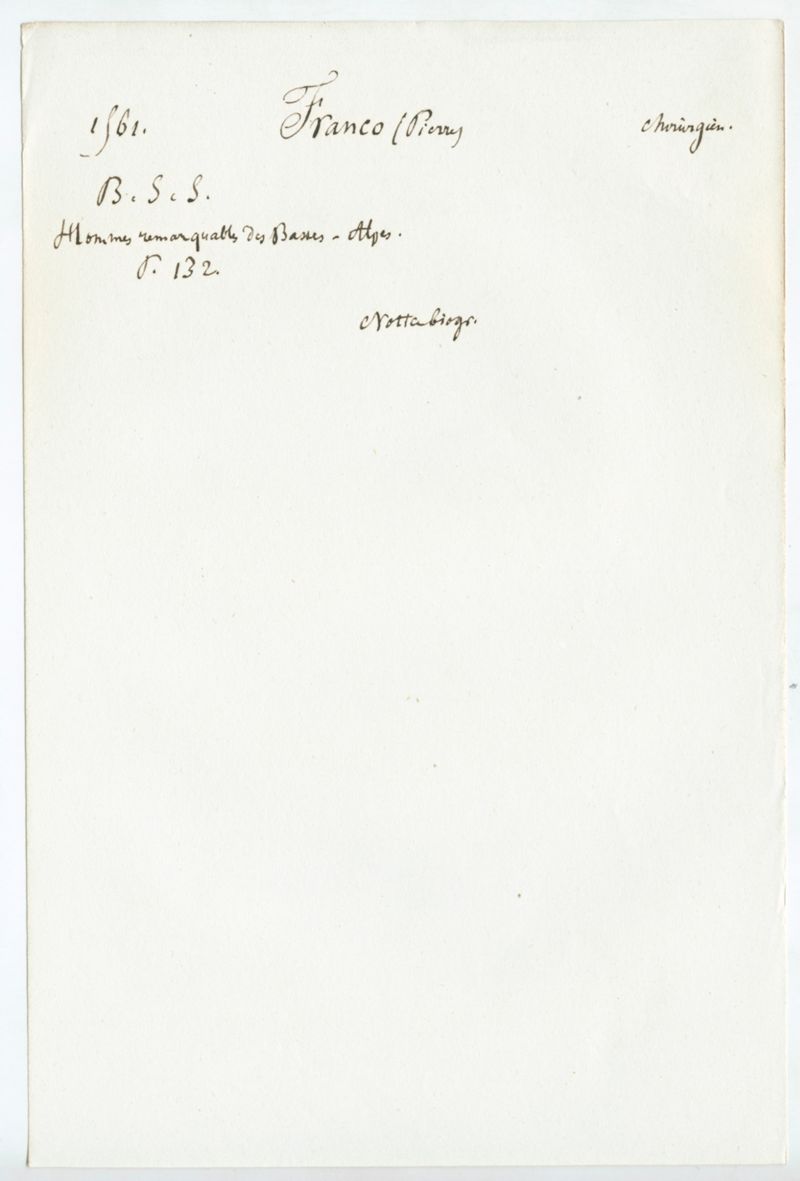 1561. Franco (Pierre) Chirurgien.
B. S. S.
Hommes remarquables des Basses-Alpes.
P. 132.
Notta biogr.